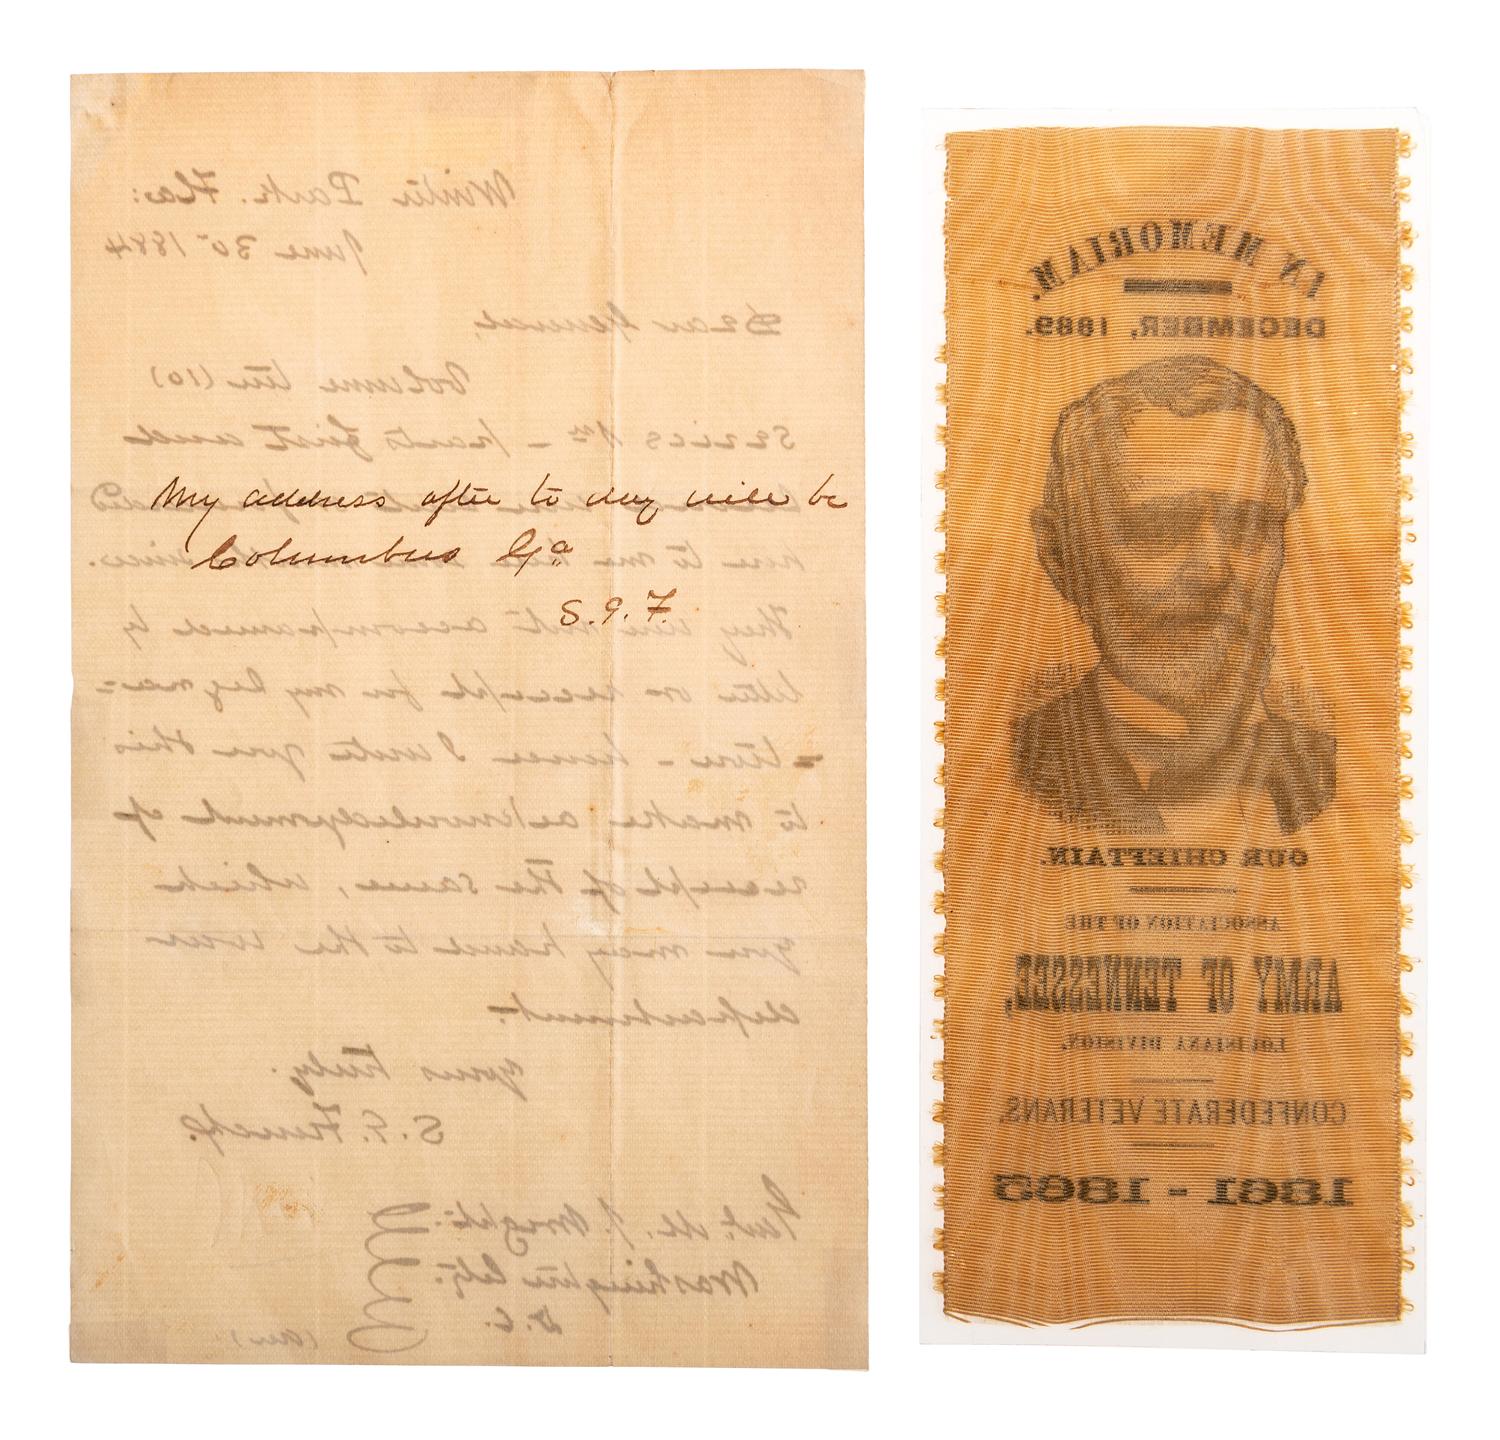 My address after to day will be
Columbus Ga
S. G. F.
Winter Park. Fla:
June 30 1884
Dear General,
Volume ten (10)
Series 1st - parts first and
here to me
They were not accompanied by
letter or receipt for my signa=
=ture - hence I write you this
to make acknowledgment of
receipt of the same, which
you may hand to the War
department.
Yours truly.
S. G. French.
Genl. M. J. Wright:
Washington City:
D. C.
(over)
IN MEMORIAM.
DECEMBER, 1889.
OUR CHIEFTAIN.
ASSOCIATION OF THE
ARMY OF TENNESSEE,
LOUISIANA DIVISION,
CONFEDERATE VETERANS.
1861 - 1865